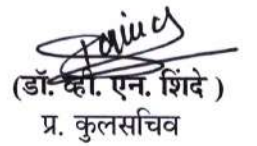 (डॉ. व्ही. एन. शिंदे )
प्र. कुलसचिव